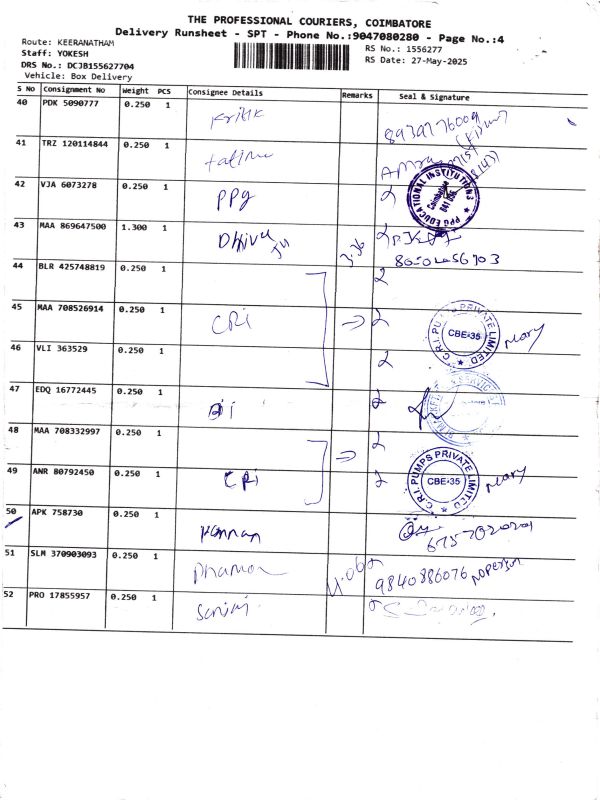 THE PROFESSIONAL COURIERS, COIMBATORE
Delivery Runsheet - SPT - Phone No.:9047080280 - Page No.:4
Route: KEERANATHAM
Staff: YOKESH
DRS No.: DCJB155627704
Vehicle: Box Delivery
RS No.: 1556277
RS Date: 27-May-2025
S No Consignment No Weight PCS Consignee Details Remarks Seal & Signature
40 PDK 5090777 0.250 1 Kritik
41 TRZ 120114844 0.250 1
42 VJA 6073278 0.250 1 PPg
PPG EDUCATIONAL INSTITUTIONS Coimbatore 641 035
43 MAA 869647500 1.300 1
44 BLR 425748819 0.250 1
45 MAA 708526914 0.250 1 CRi
C.R.I. PUMPS PRIVATE LIMITED CBE-35 Mary
46 VLI 363529 0.250 1
47 EDQ 16772445 0.250 1
48 MAA 708332997 0.250 1
49 ANR 80792450 0.250 1 CRi
C.R.I. PUMPS PRIVATE LIMITED CBE-35 Mary
50 APK 758730 0.250 1 Kannan
51 SLM 370903093 0.250 1 9840886076
52 PRO 17855957 0.250 1 Sanjai